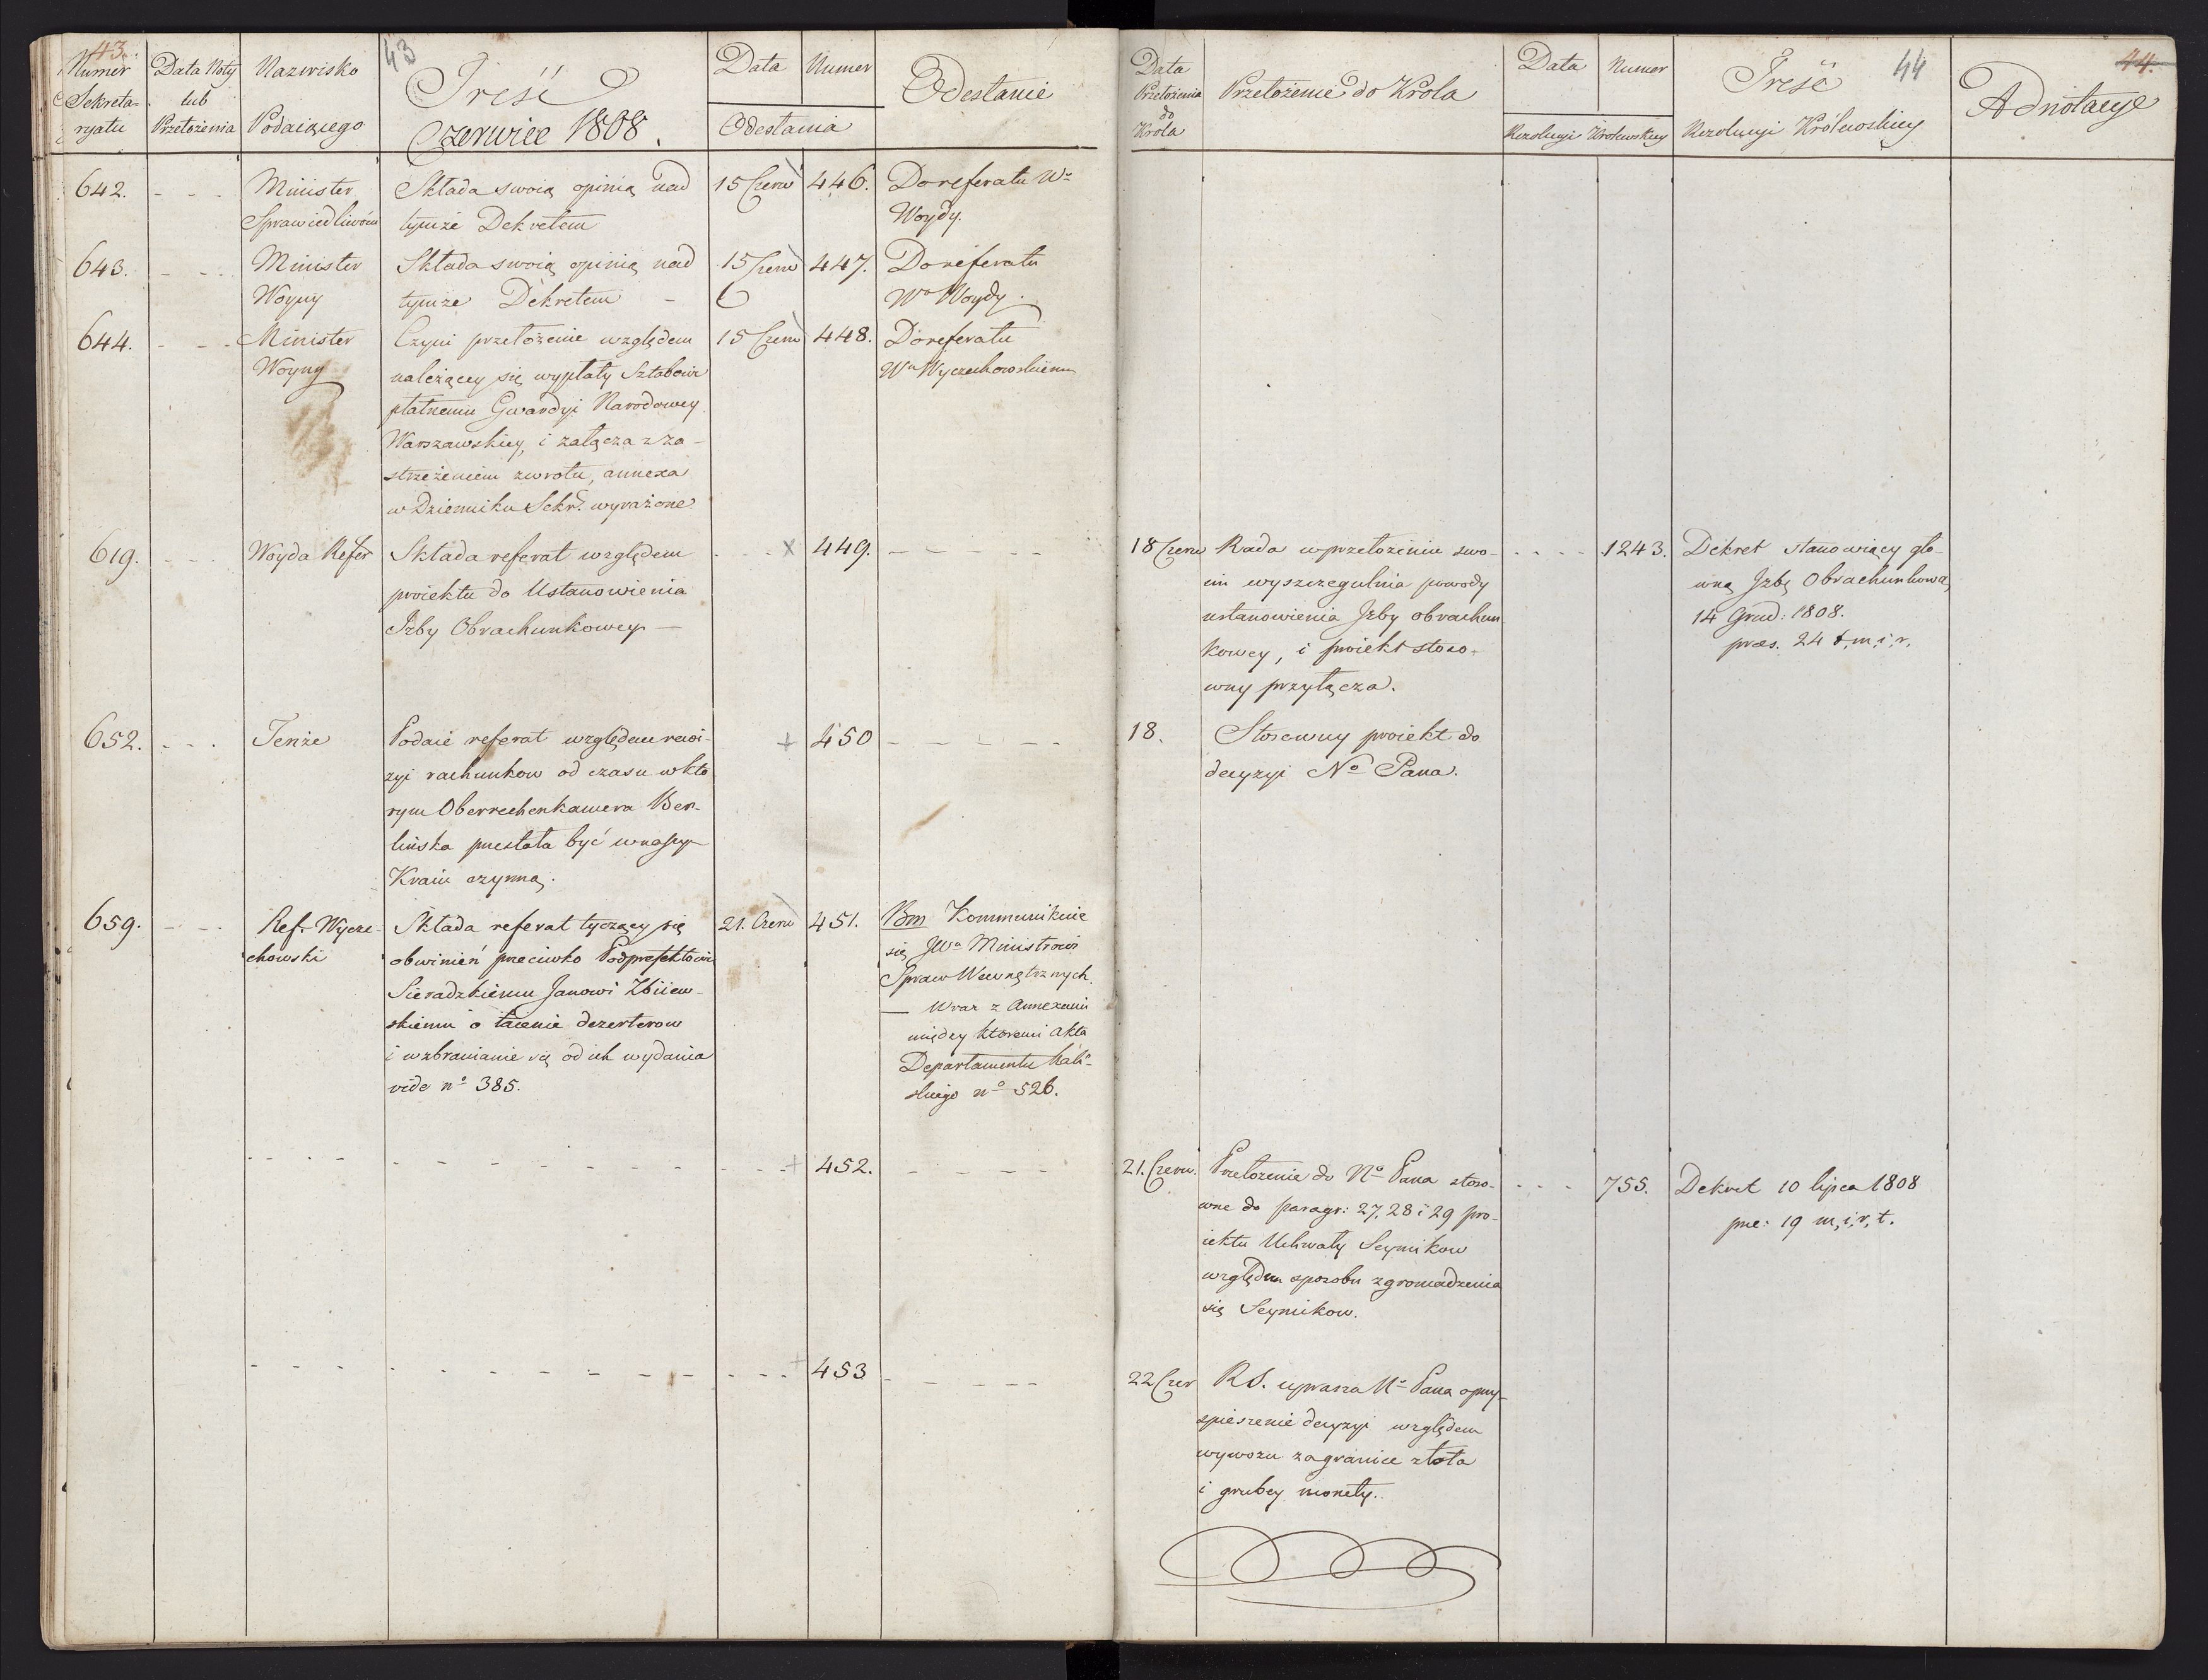 43.
43
Numer Sekretaryatu
Data Noty lub Przełożenia
Nazwisko Podaiącego
Treść
Czerwiec 1808.
Data Numer
Odesłania
Odesłanie
642. - - - Minister Składa swoią opinią nad 15 Czerw 446. Do referatu Wo
Sprawiedliwości tymże Dekretem Woydy.
643. - - - Minister Składa swoią opinią nad 15 Czerw 447. Do referatu
Woyny tymże Dekretem - Wo Woydy.
644. - - - Minister Czyni przełożenie względem 15 Czerw 448. Do referatu
Woyny należącey się wypłaty Sztabowi Wu Wyczechowskiemu
płatnemu Gwardyi Narodowey
Warszawskiey, i załącza z za-
strzeżeniem zwrotu, annexa
w Dzienniku Sekr. wyrażone.
619. - - - Woyda Refer Składa referat względem - - - x 449. - - - - -
proiektu do Ustanowienia
Izby Obrachunkowey -
652. - - - Tenże Podaie referat względem rewi- + 450 - - - - -
zyi rachunkow od czasu w kto
rym Oberrechenkamera Ber-
lińska przestała być w naszym
Kraiu czynną.
659. - - - Ref. Wycze- Składa referat tyczący się 21. Czerw 451. Bm Kommunikuie
chowski obwinień przeciwko Podprefektowi się JWu Ministrowi
Sieradzkiemu Janowi Zbiiew- Spraw Wewnętrznych.
skiemu o taienie dezerterow — Wraz z Annexami
i wzbranianie się od ich wydania między ktoremi akta
vide no 385. Departamentu Kali-
skiego no 526.
- - - - - - - - - - - - - - + 452. - - - -
- - - - - - - - - - - - - - + 453 - - - - -
44
44.
Data Przełożenia do Krola
Przełożenie do Krola
Data Numer
Rezolucyi Krolewskiey
Treść
Rezolucyi Królewskiey
Adnotacye
18 Czerw Rada w przełożeniu swo- - - - - 1243. Dekret stanowiący głó-
im wyszczegulnia powody wną Izbę Obrachunkową
ustanowienia Izby obrachun 14 Grud: 1808.
kowey, i proiekt stoso- præs. 24 t, m, i, r,
wny przyłącza.
18. Stosowny proiekt do
decyzyi No Pana.
21. Czerw. Przełożenie do No Pana stoso- - - - 755. Dekret 10 lipca 1808
wne do paragr: 27, 28 i 29 pro- pre: 19 m, i, r, t.
iektu Uchwały Seymikow
względem sposobu zgromadzenia
się Seymikow.
22 Czer RS. uprasza No Pana o przy-
spieszenie decyzyi względem
wywozu zagranice złota
i grubey monety.